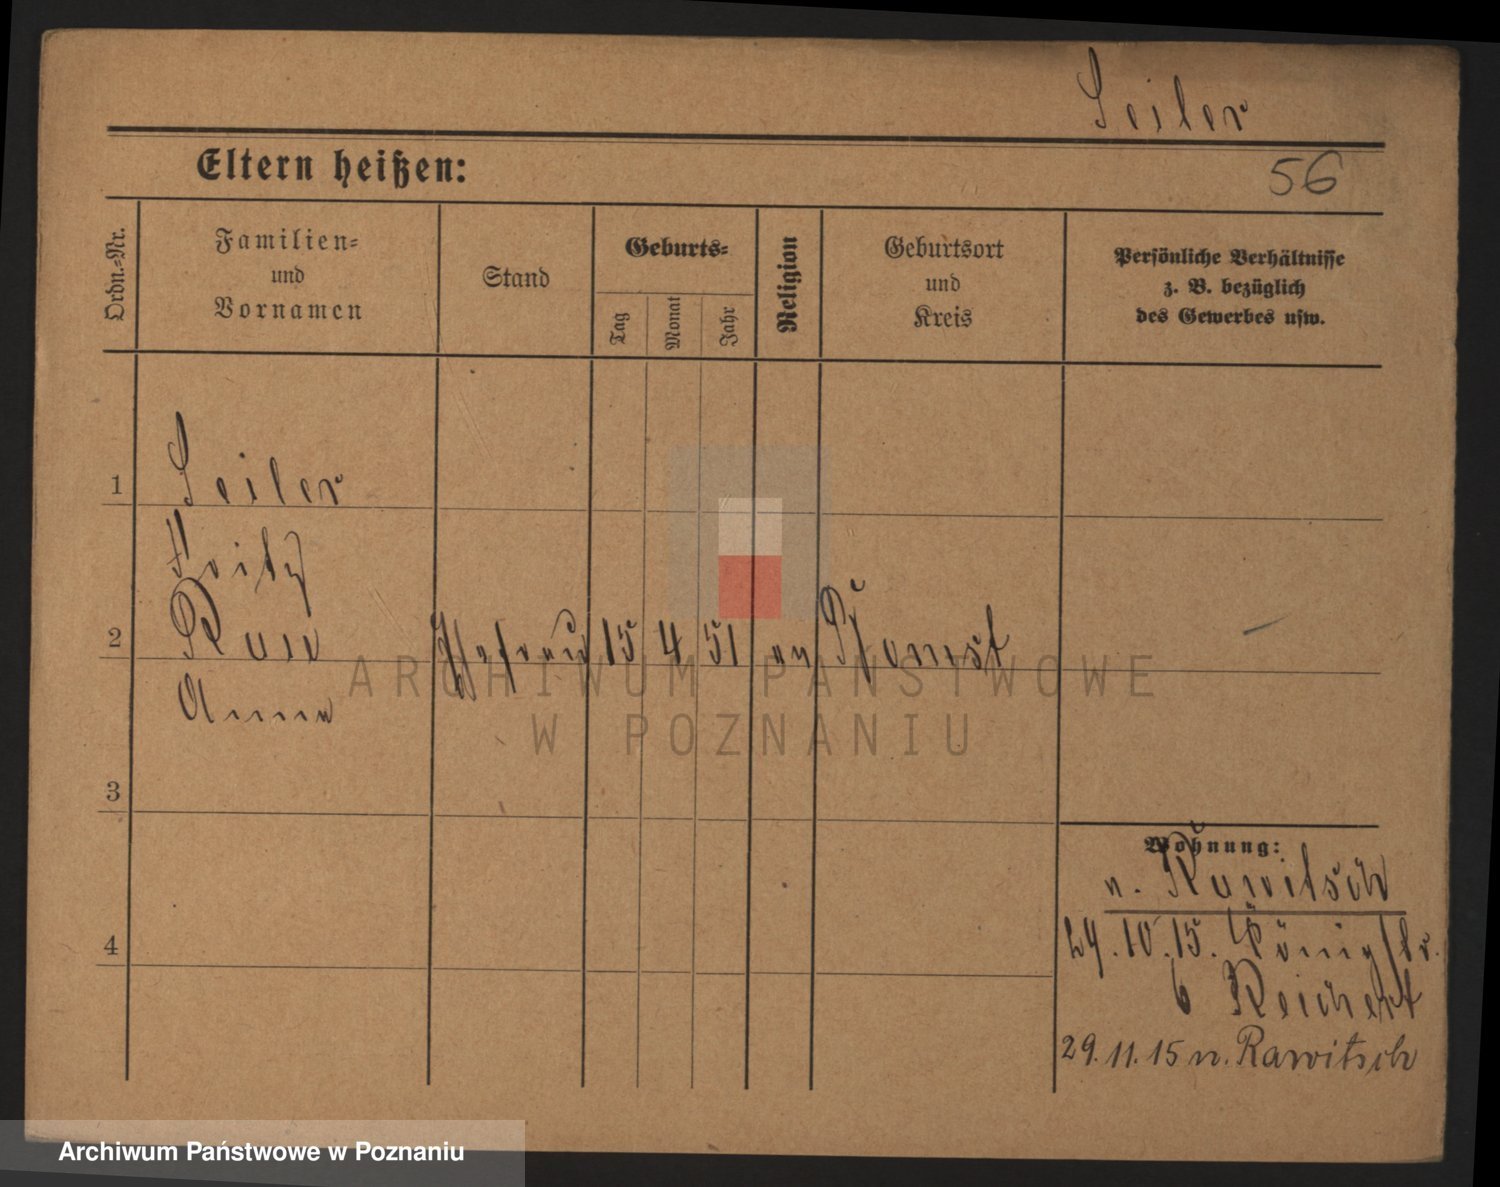 Seiler
Eltern heißen:
56
Ordn.-Nr.
Familien-
und
Vornamen
Stand
Geburts-
Tag
Monat
Jahr
Religion
Geburtsort
und
Kreis
Persönliche Verhältnisse
z. B. bezüglich
des Gewerbes usw.
1
Seiler
Fritz
2
15 4 51 ev
Anna
ARCHIWUM PAŃSTWOWE
W POZNANIU
3
Wohnung:
n. Rawitsch
4
29.10.15. Königstr.
6 Reichert
29.11.15 n. Rawitsch
Archiwum Państwowe w Poznaniu